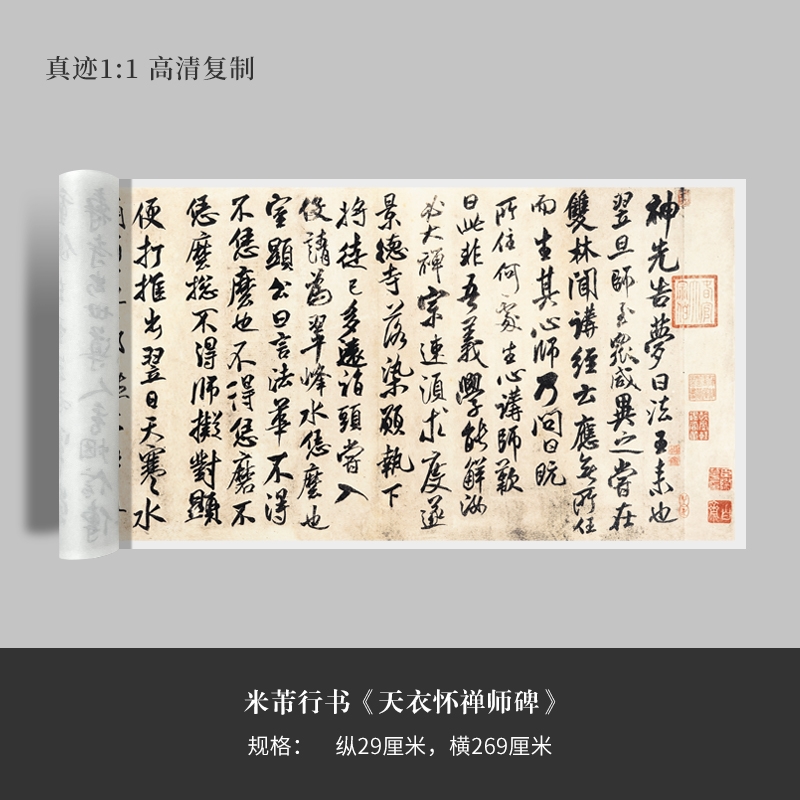 真迹1:1 高清复制
神先告夢曰法王来也
翌旦師至衆咸異之嘗在
雙林聞講經云應無所住
而生其心師乃問曰既
所住何處生心講師歎
曰此非吾義學能解汝
必大禪宗速須求度遂
景德寺落染願執下
將徒已多遠詣頭嘗入
俊請為翠峰水恁麼也
室顯公曰言法華不得
不恁麼也不得恁麼不
恁麼總不得師擬對顯
便打推出翌日天寒水
米芾行书《天衣怀禅师碑》
规格： 纵29厘米，横269厘米